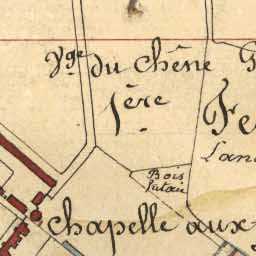 Vge du Chêne
1ère
Fe
Lan
Bois
Putau
Chapelle aux